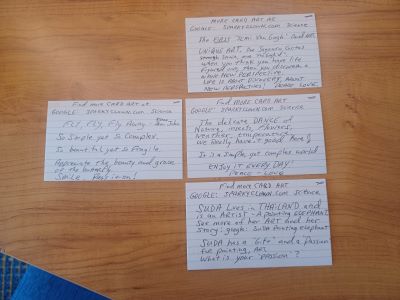 MORE CARD ART AT
GOOGLE: SPARKYCLOWN.COM Science
The EYES "Jemi Van Gogh" Card art
UNIQUE ART. 
when you think you have life
Figured out, then you discover a
whole NEW PERSPECTIVE.
LIFE IS ABOUT DISCOVERY, ABOUT
NEW PERSPECTIVES! PEACE LOVE
Find more CARD ART at
GOOGLE: SPARKYCLOWN.COM Science
Fly, Fly, Fly Away - John
So Simple, yet so Complex.
So beautiful yet so Fragile.
Appreciate the beauty and grace
of the butterfly.
SMILE
Find MORE CARD ART
GOOGLE: SPARKYCLOWN.COM Science
The delicate DANCE of
Nature, insects, Flowers,
weather, temperature.
We really have it good Here!
It is a simple, yet complex world
ENJOY IT EVERY DAY!
PEACE - LOVE
Find more CARD ART
GOOGLE: SPARKYCLOWN.COM Science
SUDA Lives in THAILAND and
is AN ARTIST - A painting ELEPHANT.
See more of her ART and her
Story: google: SUDA Painting elephant
SUDA has a "Gift" and a passion
for painting, ART
What is your "PASSION"?